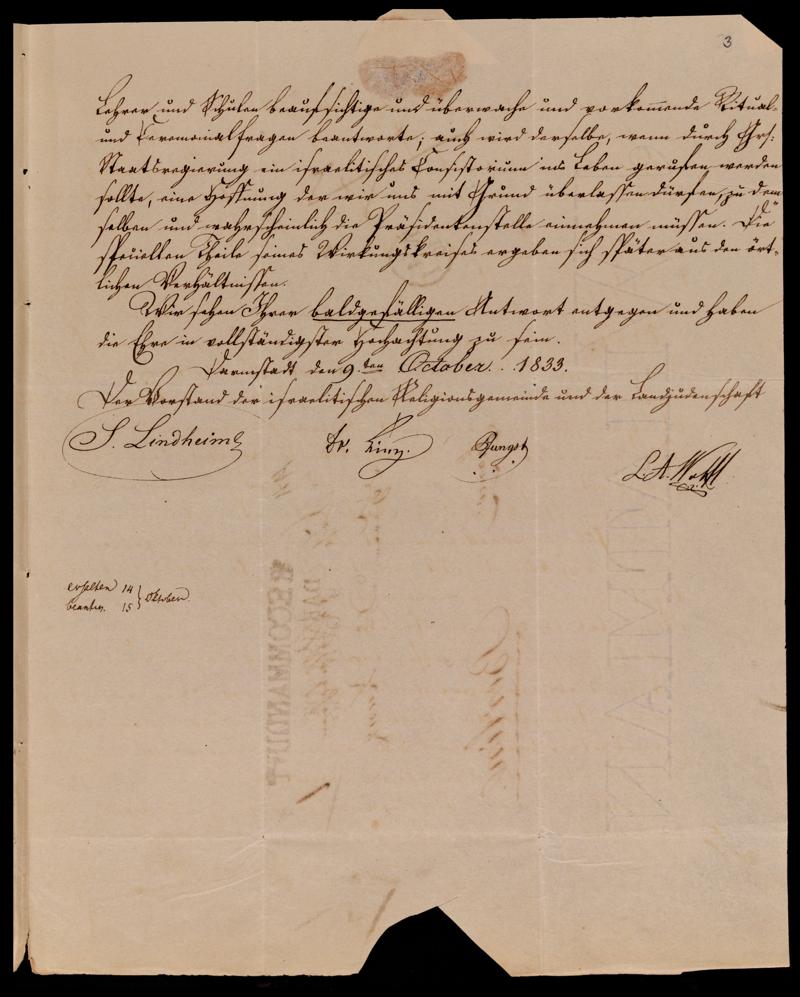 3
Lehrer und Schulen beaufsichtige und überwache und vorkom̄ende Ritual-
und Ceremonialfragen beantworte; auch wird derselbe, wenn durch Grs:
Staatsregierung ein israelitisches Consistorium ins Leben gerufen werden
sollte, eine Hoffnung der wir uns mit Grund überlassen dürfen, zu dem
selben und wahrscheinlich die Präsidentenstelle einnehmen müssen. Die
speciellen Theile seines Wirkungskreises ergeben sich später aus den ört-
lichen Verhältnissen.
Wir sehen Ihrer baldgefälligen Antwort entgegen und haben
die Ehre in vollständigster Hochachtung zu sein.
Darmstadt den 9.ten October. 1833.
Der Vorstand der israelitischen Religionsgemeinde und der Landjudenschaft
S. Lindheim
L. A.
erhalten 14 } Oktober.
beantw. 15
RECOMMANDIRT